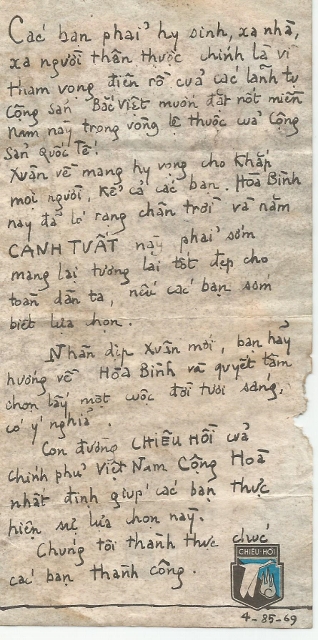 Các bạn phải hy sinh, xa nhà,
xa người thân thuộc chính là vì
tham vọng điên rồ của các lãnh tụ
Cộng sản Bắc Việt muốn đặt nốt miền
Nam này trong vòng lệ thuộc của Cộng
Sản Quốc Tế!
Xuân về mang hy vọng cho khắp
mọi người, kể cả các bạn. Hòa Bình
đã ló rạng chân trời và năm
nay
CANH TUẤT này phải sớm
mang lại tương lai tốt đẹp cho
toàn dân ta, nếu các bạn sớm
biết lựa chọn.
Nhân dịp Xuân mới, bạn hãy
hướng về Hòa Bình và quyết tâm
chọn lấy một cuộc đời tươi sáng,
có ý nghĩa.
Con đường CHIÊU HỒI của
chính phủ Việt Nam Cộng Hoà
nhất định giúp các bạn thực
hiện sự lựa chọn này.
Chúng tôi thành thực chúc
các bạn thành công.
CHIÊU-HỒI
4-85-69